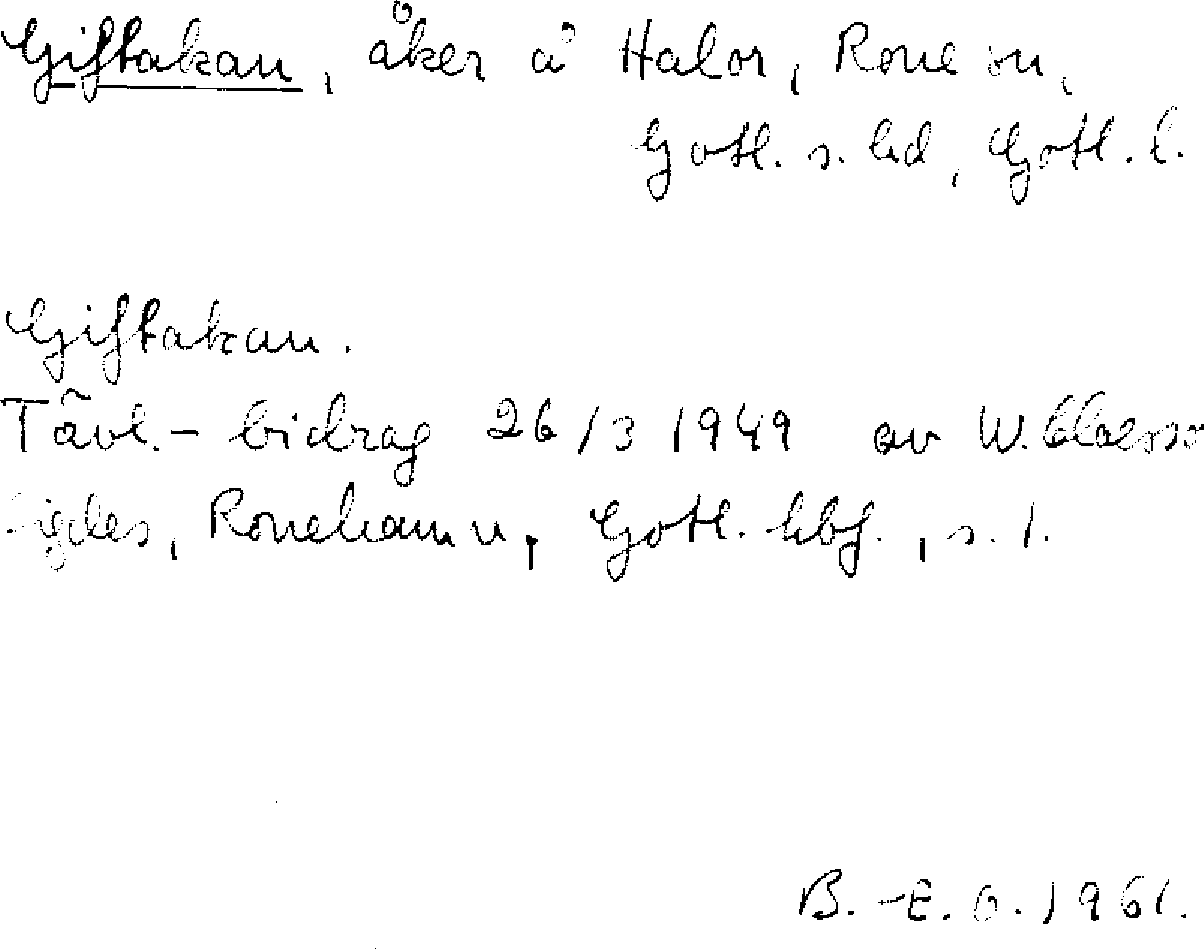 Giftakan, åker å Halor, Rone sn,
Gotl. s. hd, Gotl. l.
Giftakan.
Tävl.-bidrag 26/3 1949 av W. Claesso
Ronehamn, Gotl. hbf., s. 1.
B.-E. O. 1961.